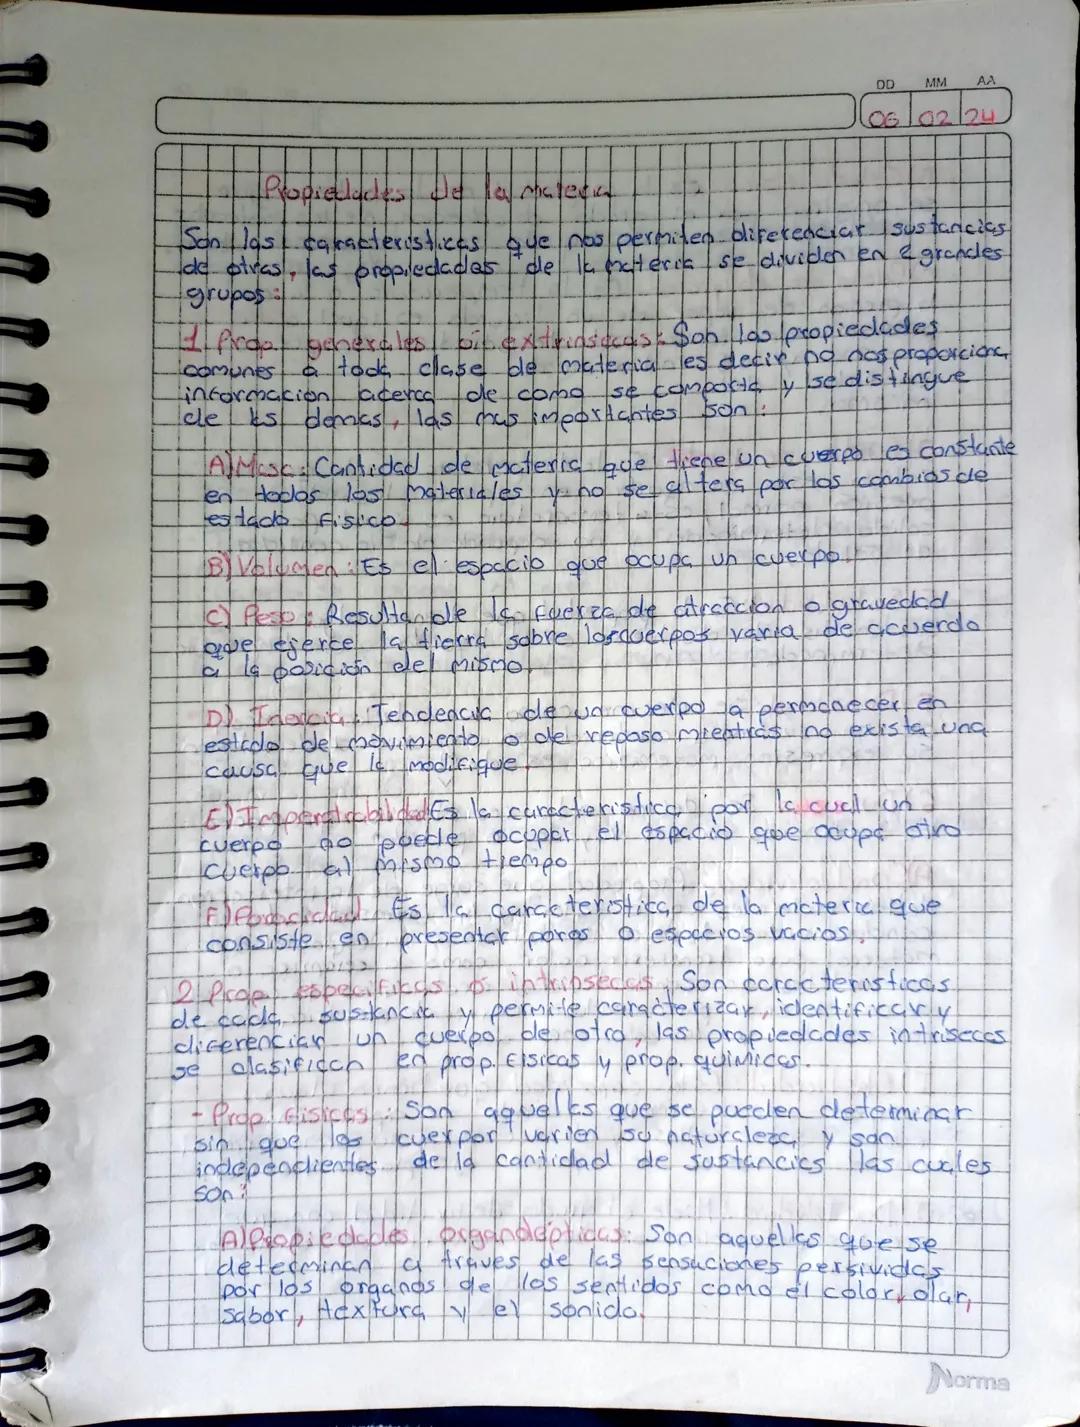 DD MM AA
06 02 24
Propiedades de la materia
Son las caracteristicas que nos permiten diferenciar sustancias
de otras, las propiedades de la materia se dividen en 2 grandes
grupos:
1. Prop generales o extrinsecas: Son las propiedades
comunes a toda clase de materia es decir no nos proporciona
informacion acerca de como se comporta y se distingue
de las demas, las mas importantes son:
A) Masa: Cantidad de materia que tiene un cuerpo es constante
en todos los materiales y no se altera por los cambios de
estado fisico.
B) Volumen: Es el espacio que ocupa un cuerpo.
C) Peso: Resulta de la fuerza de atraccion o gravedad
que ejerce la tierra sobre los cuerpos varia de acuerdo
a la posicion del mismo.
D) Inercia: Tendencia de un cuerpo a permanecer en
estado de movimiento o de reposo mientras no exista una
causa que la modifique.
E) Impenetrabilidad Es la caracteristica por la cual un
cuerpo no puede ocupar el espacio que ocupa otro
cuerpo al mismo tiempo
F) Es la caracteristica de la materia que
consiste en presentar poros o espacios vacios.
2. Prop especificas o intrinsecas. Son caracteristicas
de cada sustancia y permite caracterizar, identificar y
diferenciar un cuerpo de otro, las propiedades intrisecas
se clasifican en prop. fisicas y prop. quimicas.
- Prop. fisicas: Son aquellas que se pueden determinar
sin que los cuerpor varien su naturaleza y son
independientes de la cantidad de sustancias las cuales
son:
A) Propiedades organolepticas: Son aquellas que se
determinan a traves de las sensaciones persividas
por los organos de los sentidos como el color, olar,
sabor, textura y el sonido.
Norma